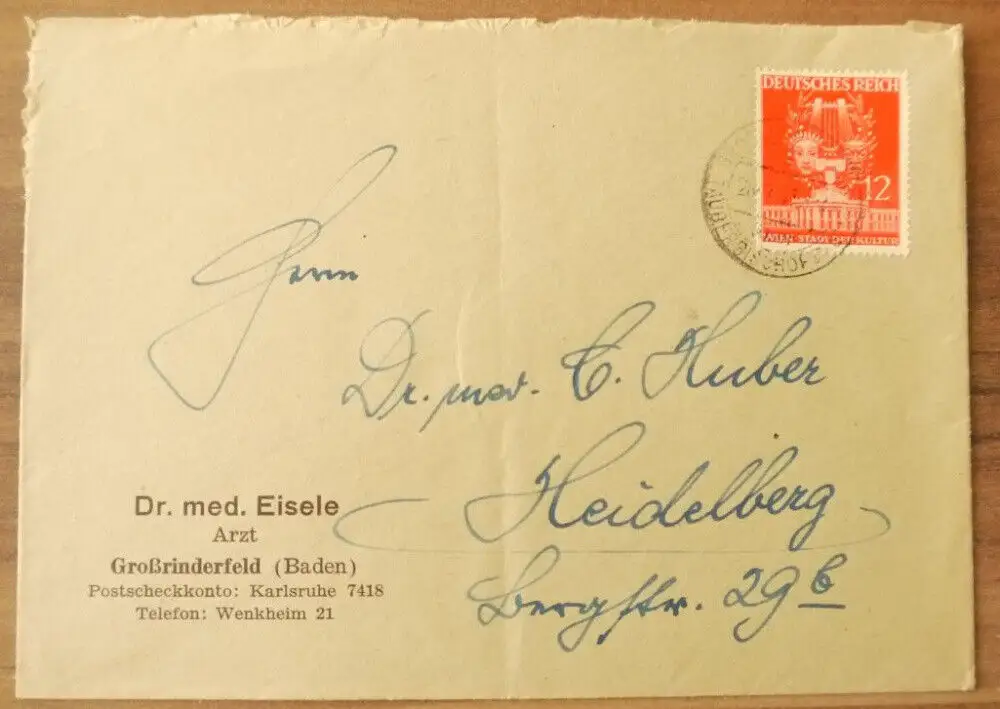 DEUTSCHES REICH
12
WIEN · STADT DER KULTUR
TAUBERBISCHOFSHEIM
Herrn
Dr. med. C. Huber
Heidelberg
Bergstr. 29b
Dr. med. Eisele
Arzt
Großrinderfeld (Baden)
Postscheckkonto: Karlsruhe 7418
Telefon: Wenkheim 21